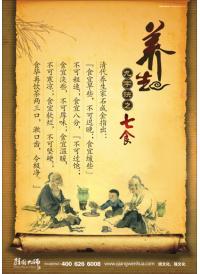 养生
字诀之
七食
清代养生家石成金指出：
『食宜早些，不可迟晚；食宜缓些，
不可粗速；食宜八分，不可过饱；
食宜淡些，不可厚味；食宜温暖，
不可寒凉；食宜软烂，不可坚硬；
食毕再饮茶两三口，漱口齿，令极净。』
400 626 6008
www.qiangwenhua.com